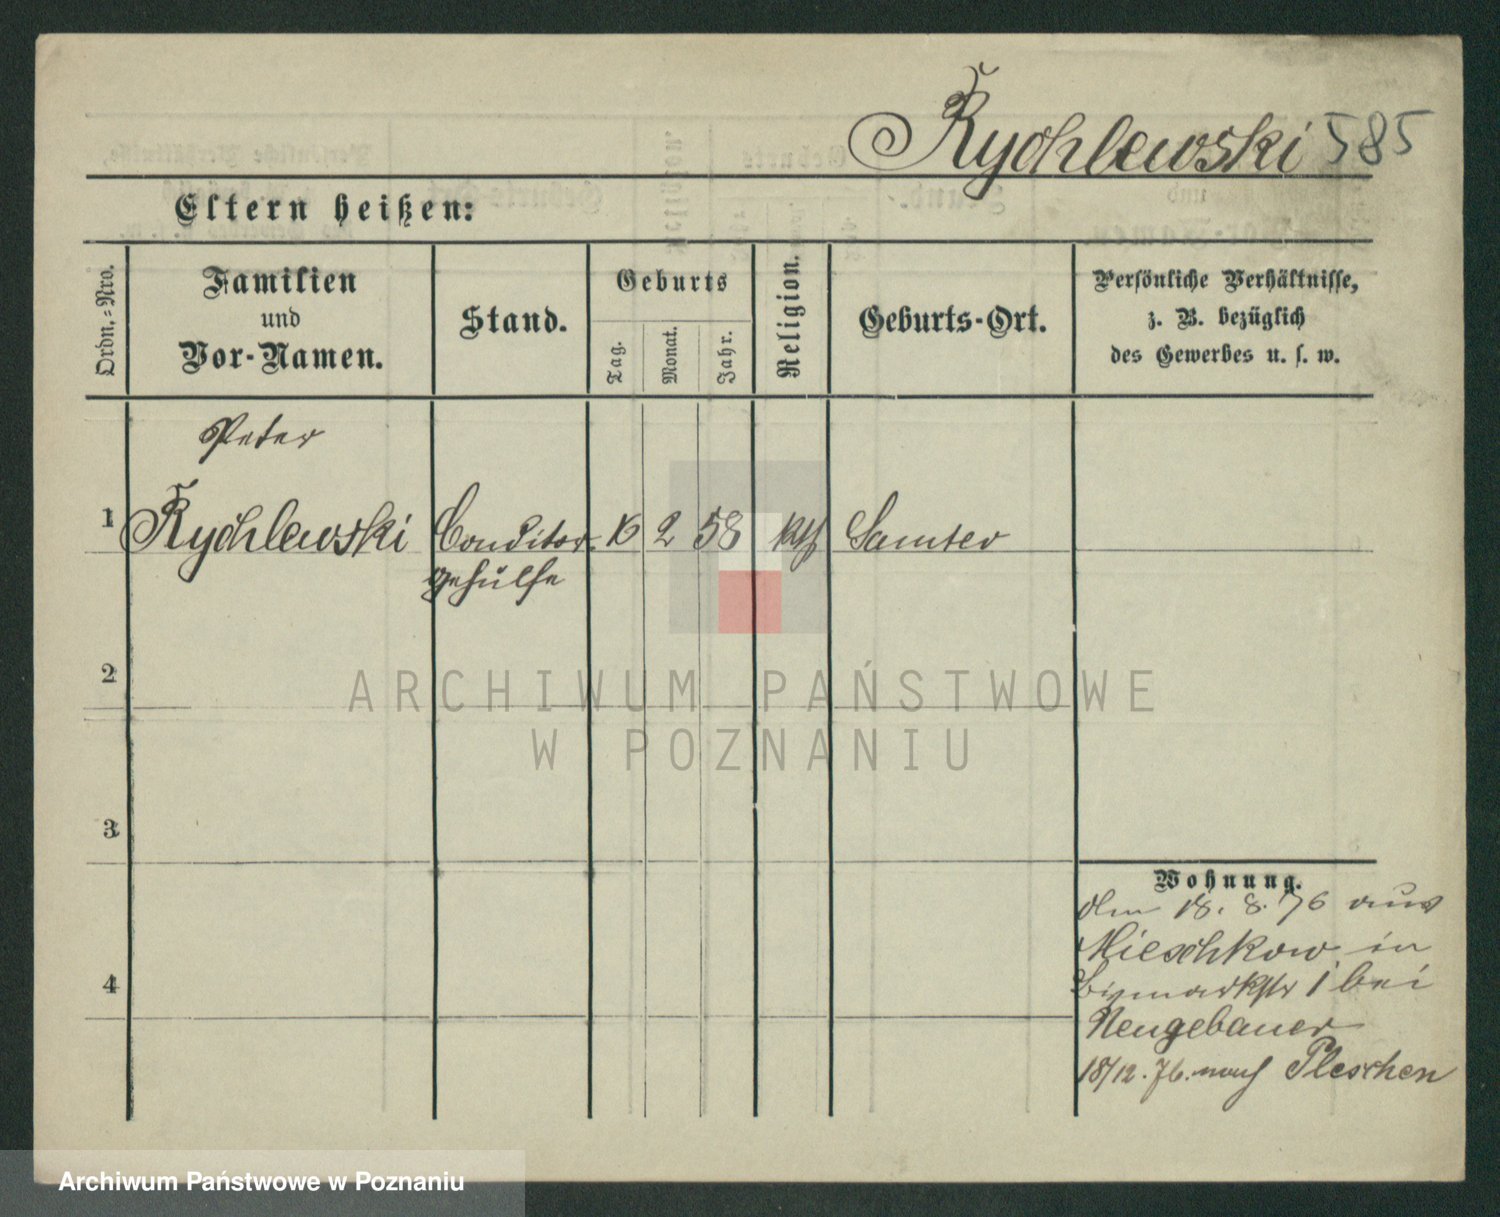 Rychlewski 585
Eltern heißen:
Ordn.-Nro.
Familien
und
Vor-Namen.
Stand.
Geburts
Tag.
Monat.
Jahr.
Religion.
Geburts-Ort.
Persönliche Verhältnisse,
z. B. bezüglich
des Gewerbes u. s. w.
Peter
1 Rychlewski Conditor- 2 58 kth Samter
gehülfe
2
3
4
Wohnung.
den 18. 8. 76 aus
Mieschkow in
Bismarkstr 1 bei
Neugebauer
18/12. 76. nach Pleschen
ARCHIWUM PAŃSTWOWE
W POZNANIU
Archiwum Państwowe w Poznaniu